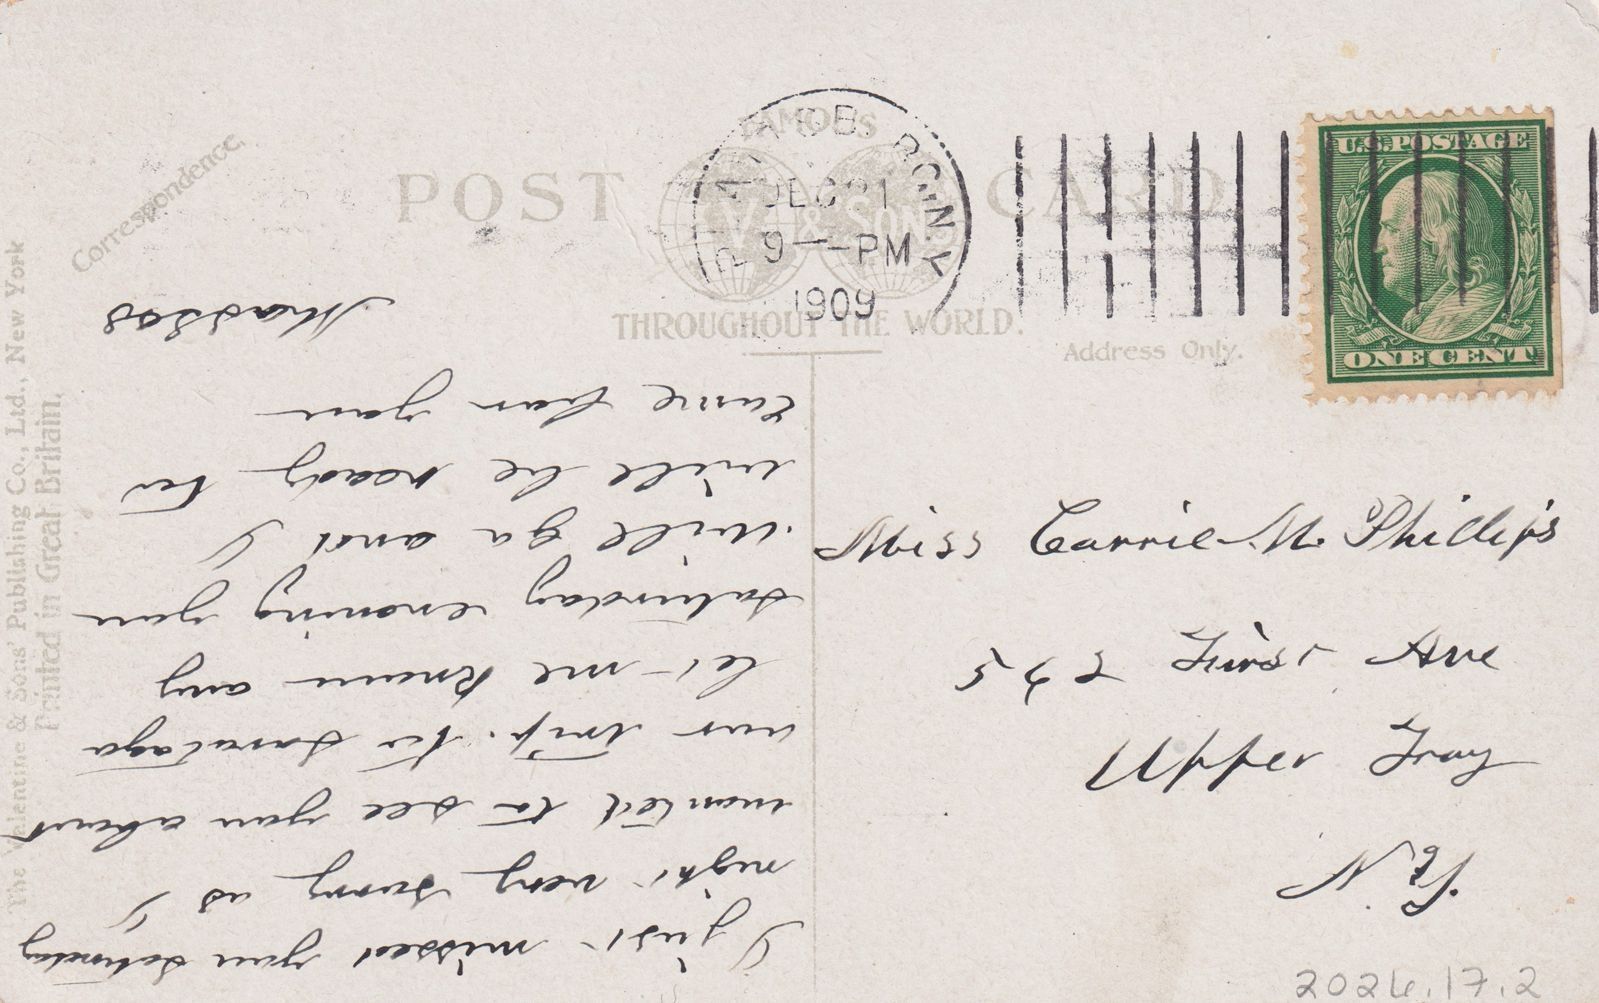 POST CARD
FAMOUS
V & SONS
THROUGHOUT THE WORLD.
Correspondence.
Address Only.
The Valentine & Sons' Publishing Co., Ltd., New York
Printed in Great Britain.
N.Y.
DEC 21
9 — PM
1909
U.S. POSTAGE
ONE CENT
Miss Carrie M. Phillips
542 First Ave
Upper Troy
N.Y.
I just missed you Saturday
night very sorry as I
wanted to see you about
our trip. to Saratoga
let me know any
Saturday evening you
will go and I
will be ready to
Come from you
2024.17.2